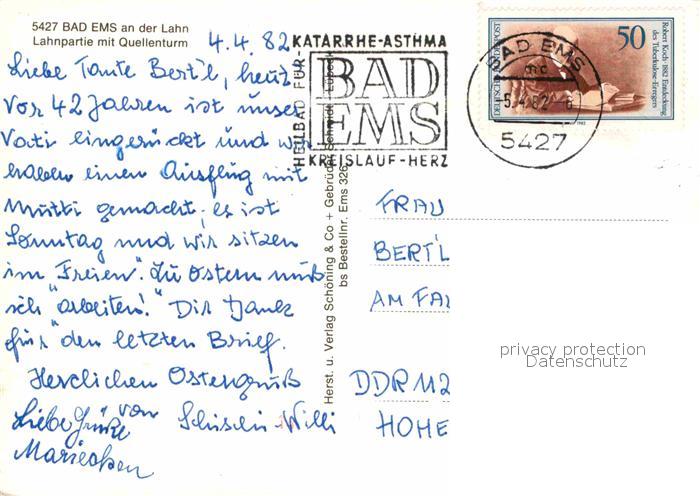 5427 BAD EMS an der Lahn
Lahnpartie mit Quellenturm
4.4.82
Liebe Tante Bert'l, heute
vor 42 Jahren ist unser
Vati eingerückt und wir
haben einen Ausflug mit
Mutti gemacht; es ist
Sonntag und wir sitzen
im "Freien". Zu Ostern muß
ich "arbeiten!" Dir Dank
für den letzten Brief.
Herzlichen Ostergruß
von Willi
Liebe Grüße
Mariechen
KATARRHE-ASTHMA
HEILBAD FÜR
BAD
EMS
KREISLAUF-HERZ
BAD EMS
5.4.82
5427
50
Robert Koch 1882 Entdeckung
des Tuberkulose-Erregers
DEUTSCHE BUNDESPOST
1982
Herst. u. Verlag Schöning & Co + Gebrüder Schmidt, Lübeck
bs Bestellnr. Ems 326
FRAU
BERT'L
AM FAL
DDR 112
HOHE
privacy protection
Datenschutz